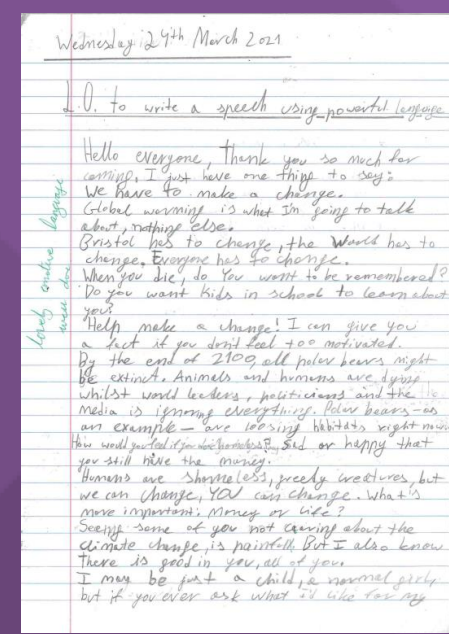 Wednesday 24th March 2021
L.O. to write a speech using powerful language
Hello everyone, Thank you so much for
coming. I just have one thing to say:
We have to make a change.
Global worming is what Im going to talk
about, nothing else.
Bristol has to change, the World has to
change. Everyone has to change.
When you die, do You want to be remembered?
Do you want kids in school to learn about
you?
Help make a change! I can give you
a fact if you don't feel too motivated.
By the end of 2100, all polar bears might
be extinct. Animals and humans are dying
whilst world leaders, politicians and the
media is ignoring everything. Polar bears - as
an example - are loosing habitats right now
How would you feel if you were homeless? Sad or happy that
you still have the money.
Humans are shameless, greedy creatures, but
we can change, YOU can change. What's
more important: Money or Life?
Seeing some of you not caring about the
climate change, is painfull. But I also know
there is good in you, all of you.
I may be just a child, a normal girl,
but if you ever ask what i'd like for my
lovely emotive language
well done